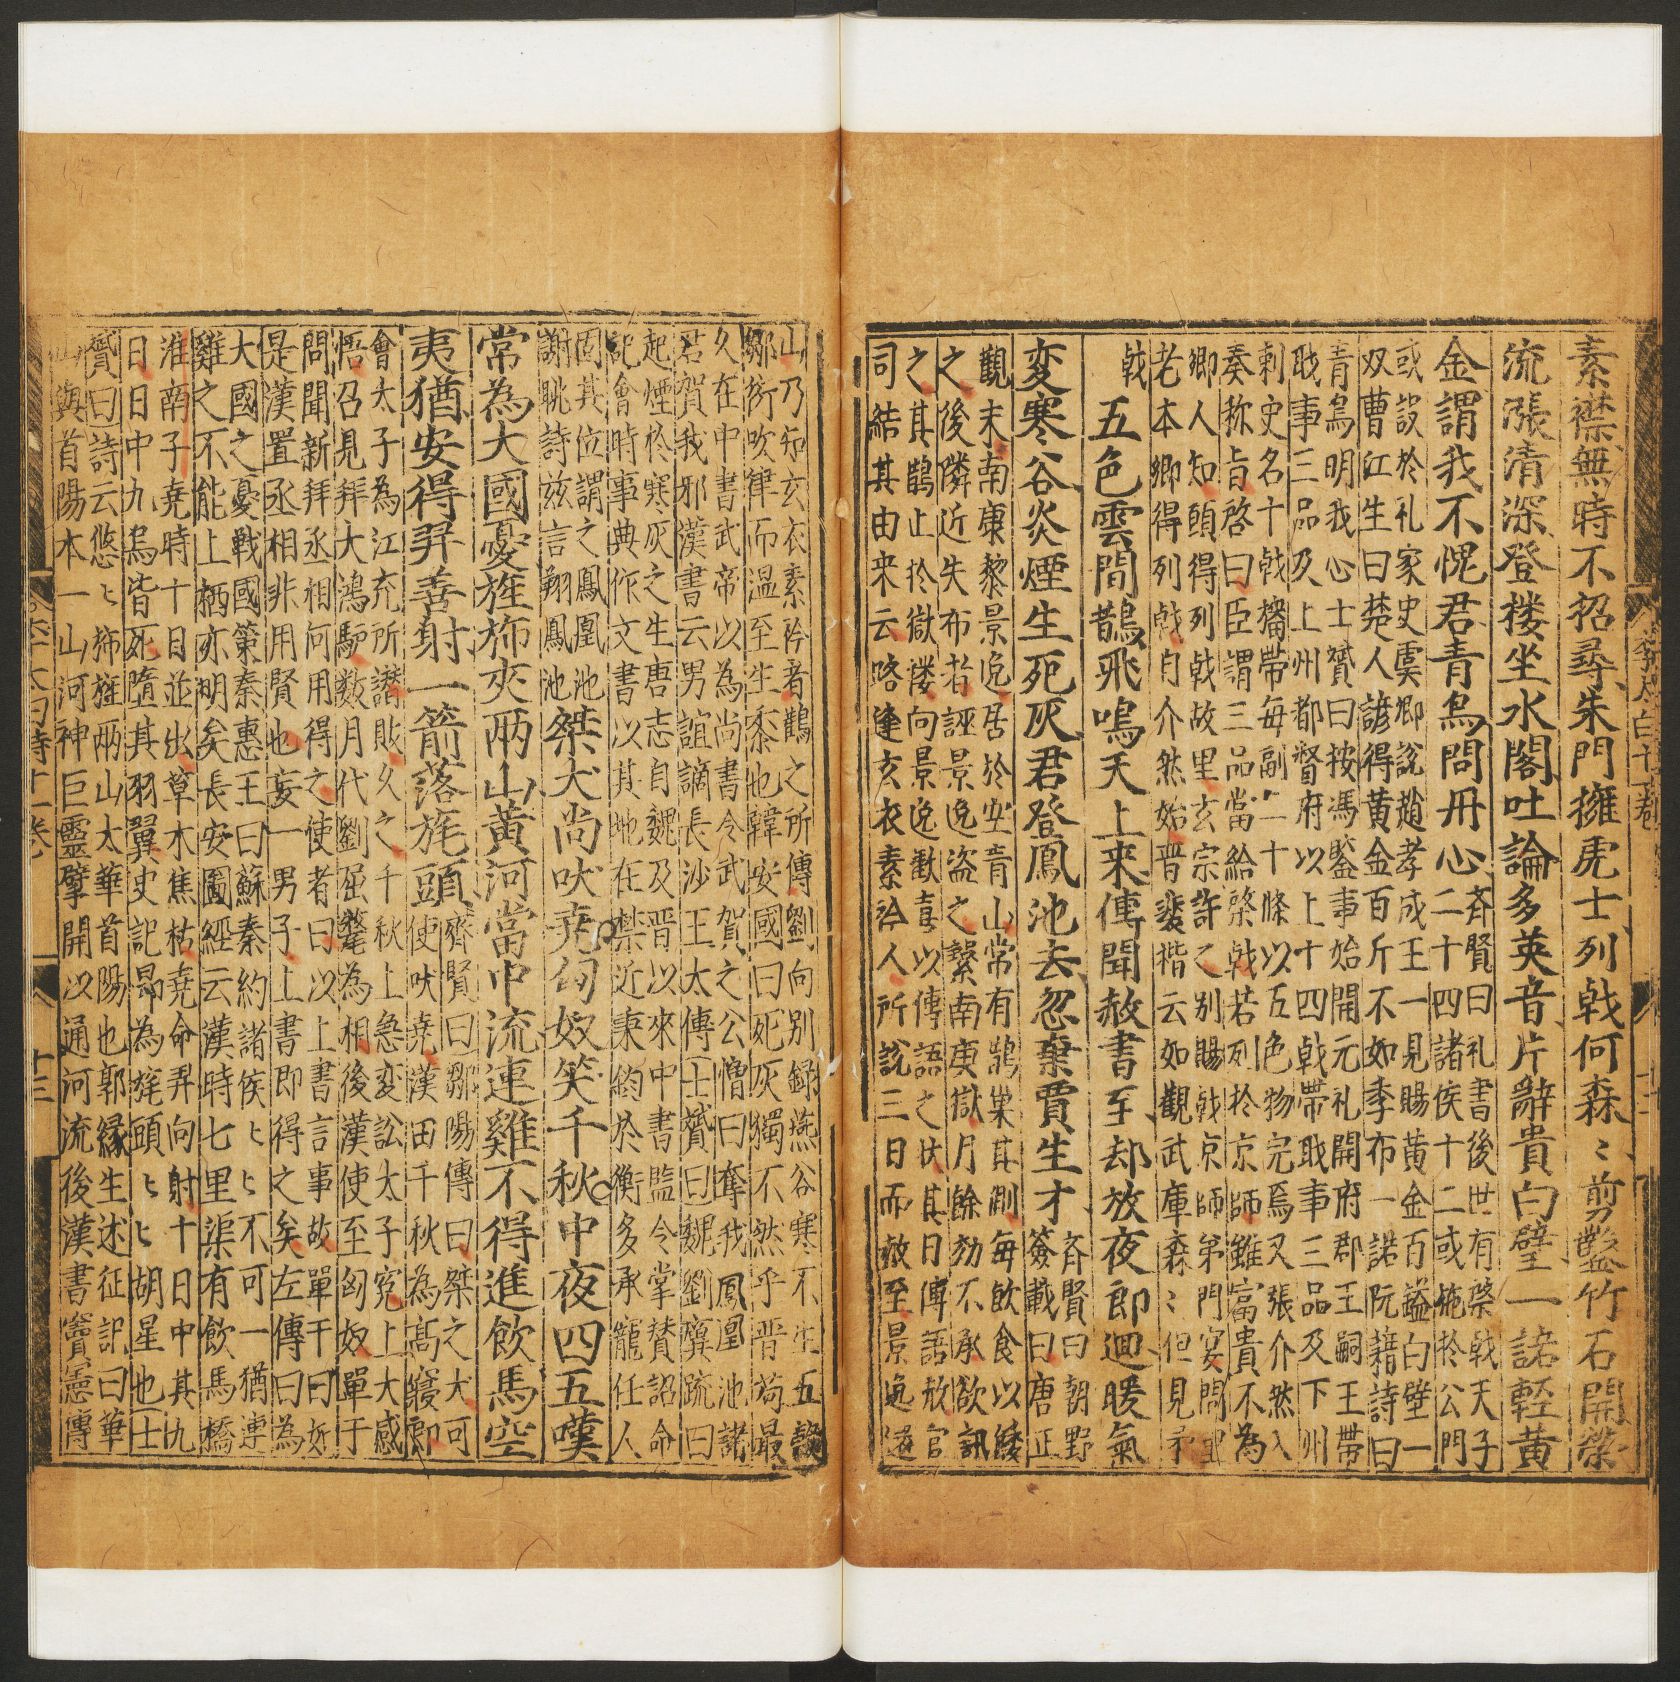 素襟無時不招尋朱門擁虎士列戟何森〻剪鑿竹石開縈
流漲清深登楼坐水閣吐論多英音片辭貴白璧一諾輕黃
金謂我不愧君青鳥問丹心
斉賢曰礼書後世有棨戟天子
二十四諸侯十二或施於公門
或設於礼家史虞卿說趙孝成王一見賜黃金百鎰白璧一
双曹江生曰楚人諺得黃金百斤不如季布一諾阮籍詩曰
青鳥明我心士贇曰按馮鑒事始開元礼開府郡王嗣王帶
戢事三品及上州都督府以上十四戟帶戢事三品及下州
剌史名十戟襠帶每副二十條以五色物完焉又張介然入
奏称旨啓曰臣謂三品當給棨戟若列於京師雖富貴不為
鄉人知頭得列戟故里玄宗許之別賜戟京師弟門宴問里
老本鄉得列戟自介然始晋裴楷云如觀武庫森〻但見矛
戟
五色雲間鵲飛鳴天上来傳聞赦書至却放夜郎迴暖氣
变寒谷炎煙生死灰君登鳳池去忽棄賈生才
斉賢曰朝野
簽載曰唐正
觀末南康黎景逸居於空青山常有鵲巢其側每飲食以餧
之後隣近失布者誣景逸盗之繫南庚獄月餘劾不承欲訊
之其鵲止於獄楼向景逸歡喜以傳語之状其日傳語赦官
司結其由来云路逢玄衣素衿人所說三日而赦至景逸還
山乃知玄衣素衿者鵲之所傳劉向别録燕谷寒不生五穀
鄒衍吹律而温至生黍也韓安國曰死灰獨不然乎晋荀最
久在中書武帝以為尚書令武賀之公憎曰奪我鳳凰池諸
君賀我邪漢書云男誼謫長沙王太傳士贇曰魏劉廙疏曰
起煙於寒灰之生唐志自魏及晋以來中書監令掌賛詔命
記會時事典作文書以其地在禁近秉鈞於衡多承寵任人
固其位謂之鳳凰池
謝眺詩玆言翔鳳池
桀犬尚吠堯匈奴笑千秋中夜四五嘆
常為大國憂旌斾夾兩山黃河當中流連雞不得進飲馬空
夷猶安得羿善射一箭落旄頭
齊賢曰鄒陽傳曰桀之犬可
使吠堯漢田千秋為髙寢郎
會太子為江充所譖敗久之千秋上急変訟太子寃上大感
悟召見拜大鴻臚数月代劉屈氂為相後漢使至匈奴單于
問聞新拜丞相何用得之使者曰以上書言事故單于曰如
是漢置丞相非用賢也妄一男子上書即得之矣左傳曰為
大國之憂戰國策秦惠王曰蘇秦約諸侯〻〻不可一猶連
雞之不能上栖亦明矣長安圖經云漢時七里渠有飲馬橋
淮南子堯時十日並出草木焦枯堯命羿向射十日中其九
日日中九烏皆死墮其羽翼史記昴為旄頭〻〻胡星也士
贇曰詩云悠〻斾旌兩山太華首陽也郭縁生述征記曰華
山與首陽本一山河神巨靈擘開以通河流後漢書竇憲傳